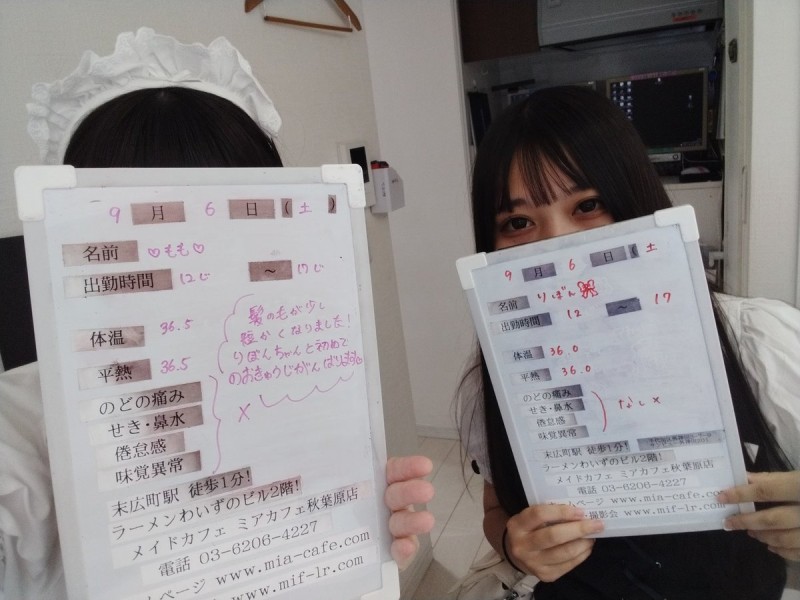 9 月 6 日 ( 土 )
名前 ♡もも♡
出勤時間 12じ ～ 17じ
体温 36.5
平熱 36.5
髪の毛が少し
短かくなりました!
りぼんちゃんと初めて
のおきゅうじがんばります
のどの痛み
せき・鼻水
倦怠感
味覚異常
×
末広町駅 徒歩1分!
ラーメンわいずのビル2階!
メイドカフェ ミアカフェ秋葉原店
電話 03-6206-4227
ームページ www.mia-cafe.com
www.mif-lr.com
9 月 6 日 ( 土
名前 りぼん
出勤時間 12 ～ 17
体温 36.0
平熱 36.0
のどの痛み
せき・鼻水
倦怠感
味覚異常
なし×
末広町駅 徒歩1分!
ラーメンわいずのビル2階!
メイドカフェ ミアカフェ秋葉原店
電話 03-6206-4227
ームページ www.mia-cafe.
撮影会 www.mif-lr.com